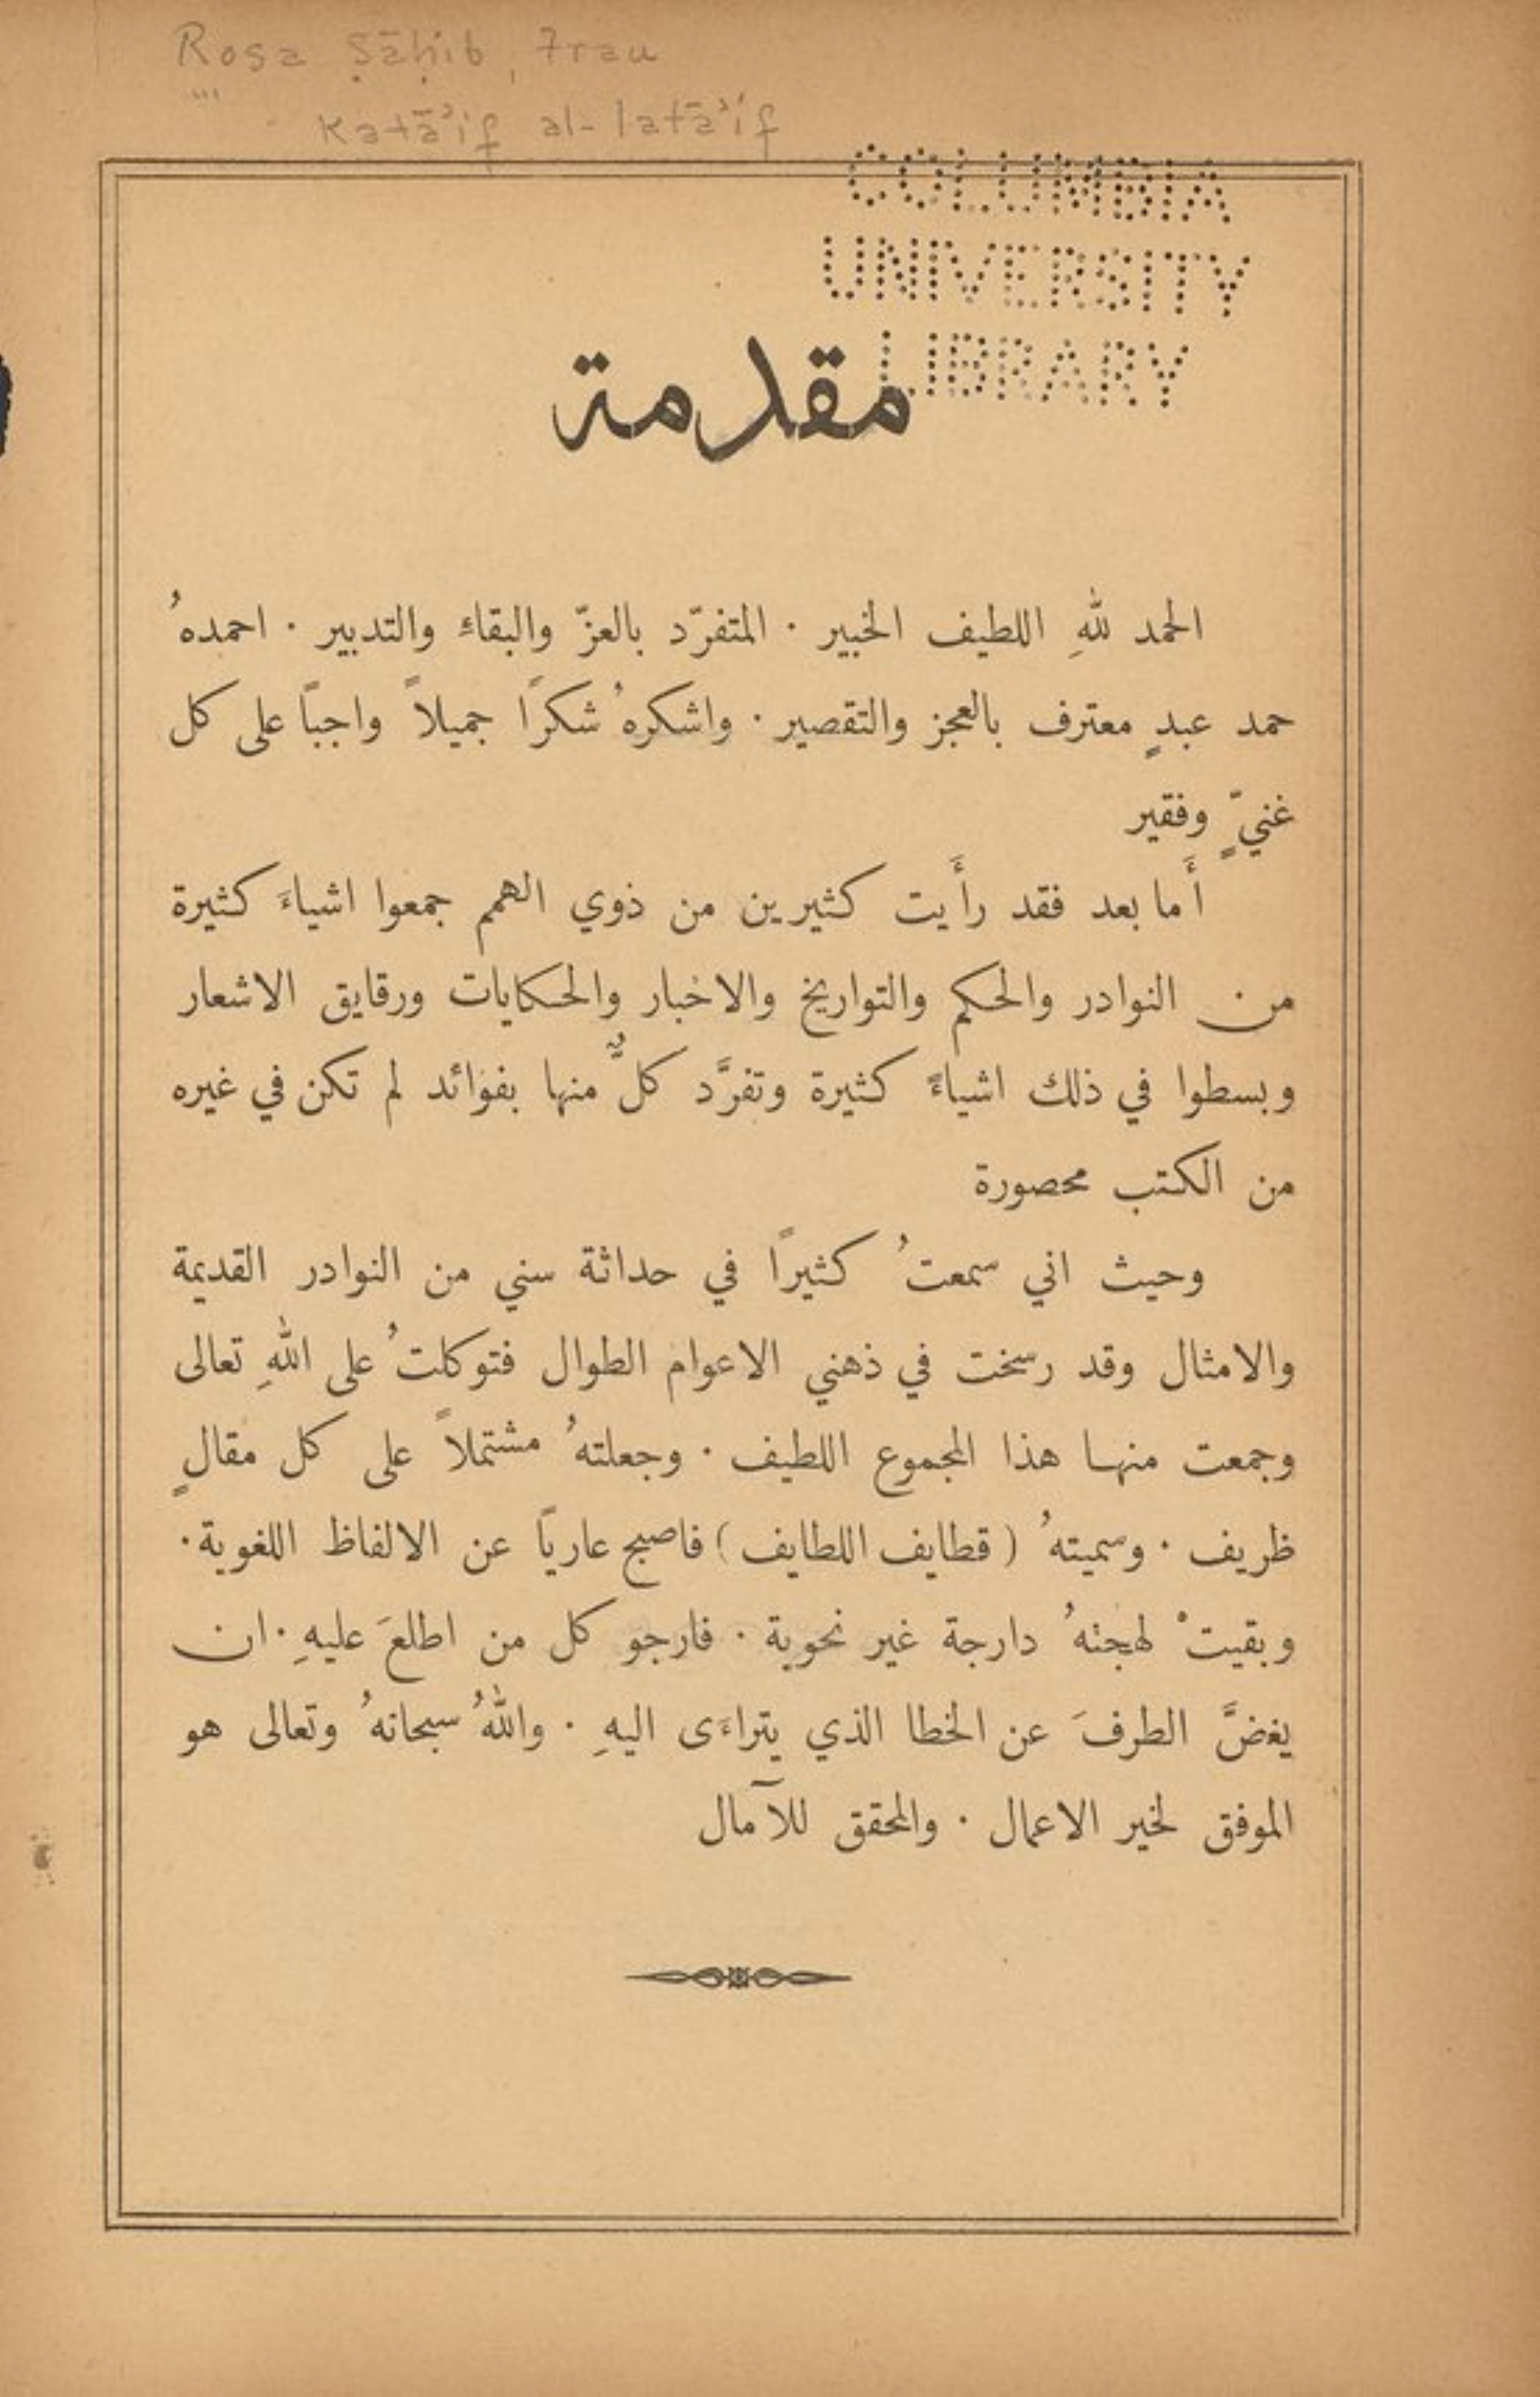 Rosa Ṣāḥib, Frau
Ḳaṭāʾif al-laṭāʾif
COLUMBIA
UNIVERSITY
LIBRARY
مقدمة
الحمد للهِ اللطيف الخبير · المتفرّد بالعزّ والبقاءِ والتدبير · احمدهُ
حمد عبدٍ معترف بالعجز والتقصير · واشكرهُ شكرًا جميلاً واجبًا على كل
غنيٍّ وفقير
أَما بعد فقد رأَيت كثيرين من ذوي الهمم جمعوا اشياءَ كثيرة
من النوادر والحكم والتواريخ والاخبار والحكايات ورقايق الاشعار
وبسطوا في ذلك اشياءً كثيرة وتفرَّد كلٌّ منها بفوائد لم تكن في غيره
من الكتب محصورة
وحيث اني سمعتُ كثيرًا في حداثة سني من النوادر القديمة
والامثال وقد رسخت في ذهني الاعوام الطوال فتوكلتُ على اللهِ تعالى
وجمعت منها هذا المجموع اللطيف · وجعلتهُ مشتملاً على كل مقالٍ
ظريف · وسميتهُ (قطايف اللطايف) فاصبح عاريًا عن الالفاظ اللغوية ·
وبقيتْ لهجتهُ دارجة غير نحوية · فارجو كل من اطلعَ عليهِ · ان
يغضَّ الطرفَ عن الخطا الذي يتراءَى اليهِ · واللهُ سبحانهُ وتعالى هو
الموفق لخير الاعمال · والمحقق للآمال